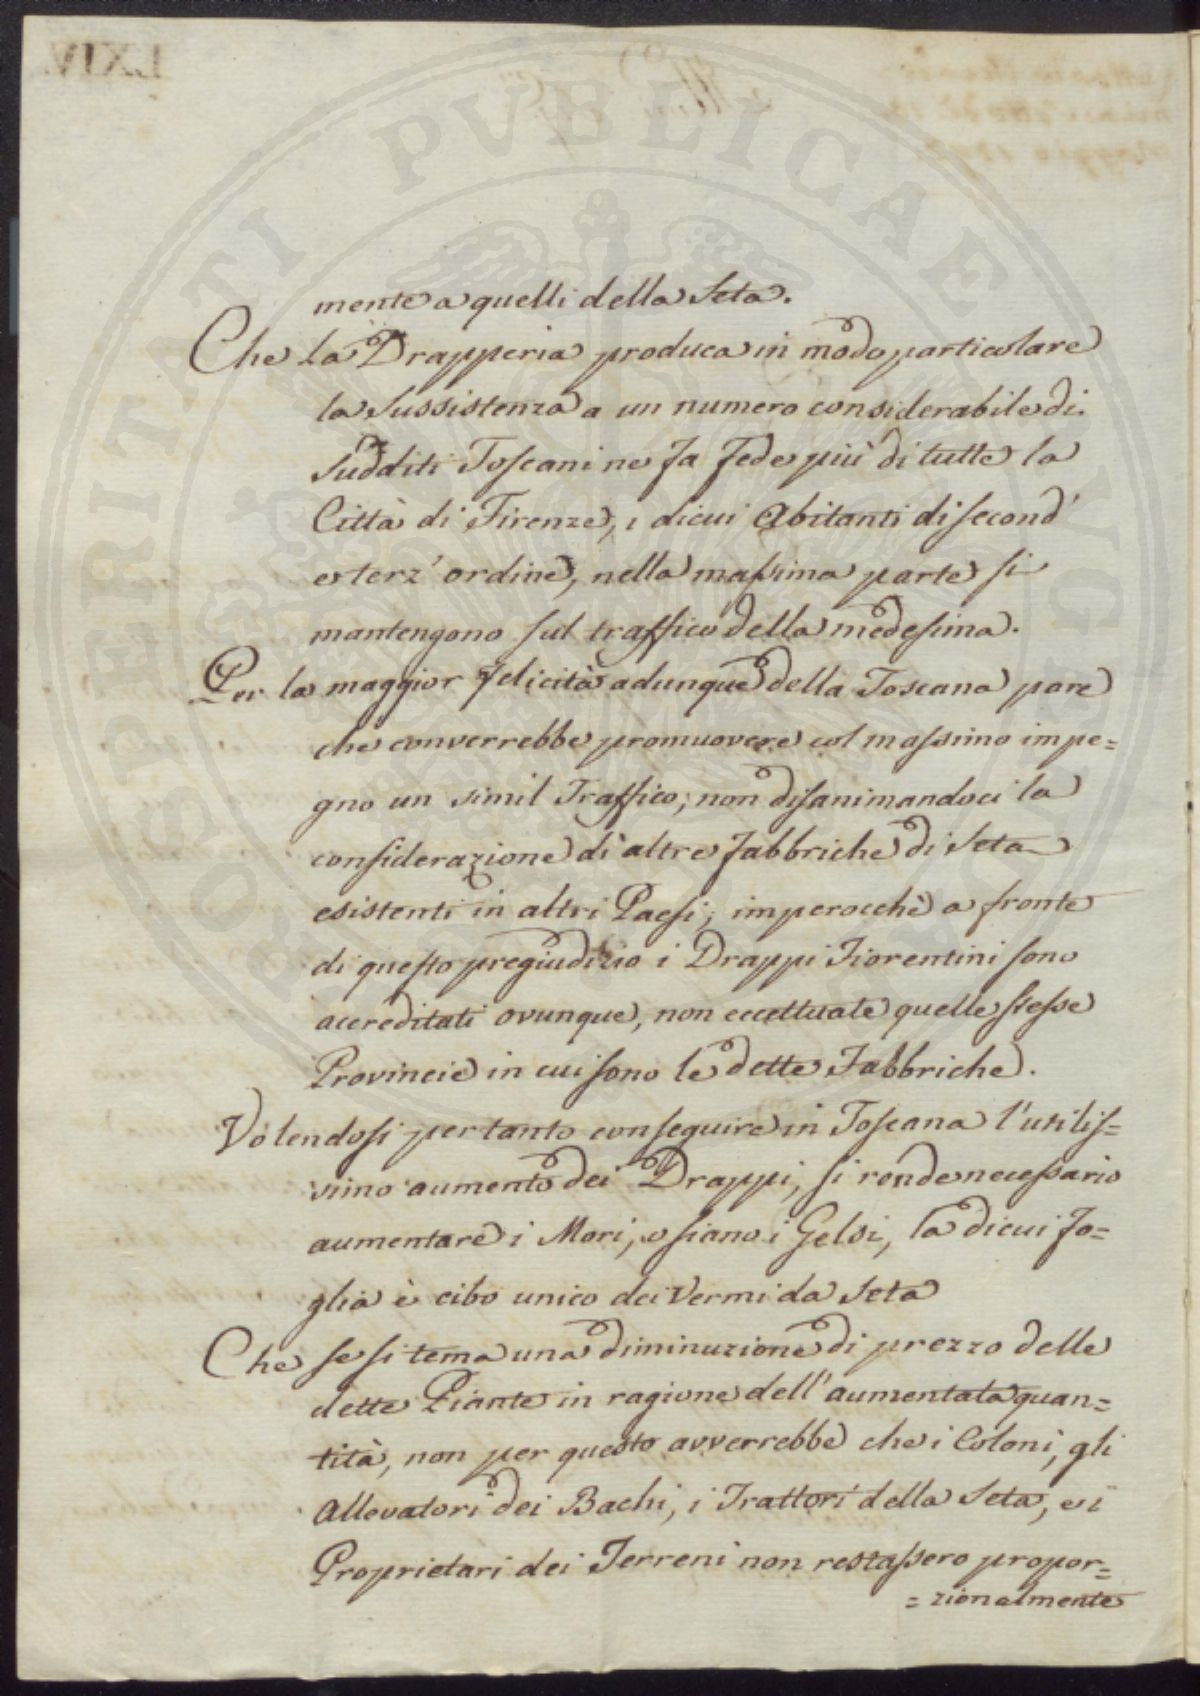 mente a quelli della Seta.
Che la Drapperia produca in modo particolare
la Sussistenza a un numero considerabile di
Sudditi Toscani ne fa fede più di tutte la
Città di Firenze, i di cui Abitanti di second'
e terz' ordine, nella massima parte si
mantengono sul traffico della medesima.
Per la maggior felicità adunque della Toscana pare
che converrebbe promuovere col massimo impe=
gno un simil Traffico; non disanimandoci la
considerazione di altre fabbriche di Seta
esistenti in altri Paesi; imperocchè a fronte
di questo pregiudizio i Drappi Fiorentini sono
accreditati ovunque, non eccettuate quelle stesse
Provincie in cui sono le dette Fabbriche.
Volendosi pertanto conseguire in Toscana l'utilis=
simo aumento dei Drappi, si rende necessario
aumentare i Mori, o siano i Gelsi, la di cui fo=
glia è cibo unico dei Vermi da Seta
Che se si tema una diminuzione di prezzo delle
dette Piante in ragione dell'aumentata quan=
tità, non per questo avverrebbe che i Coloni, gli
Allevatori dei Bachi, i Trattori della Seta, e i
Proprietari dei Terreni non restassero propor=
=zionalmente
PROSPERITATI PUBLICAE